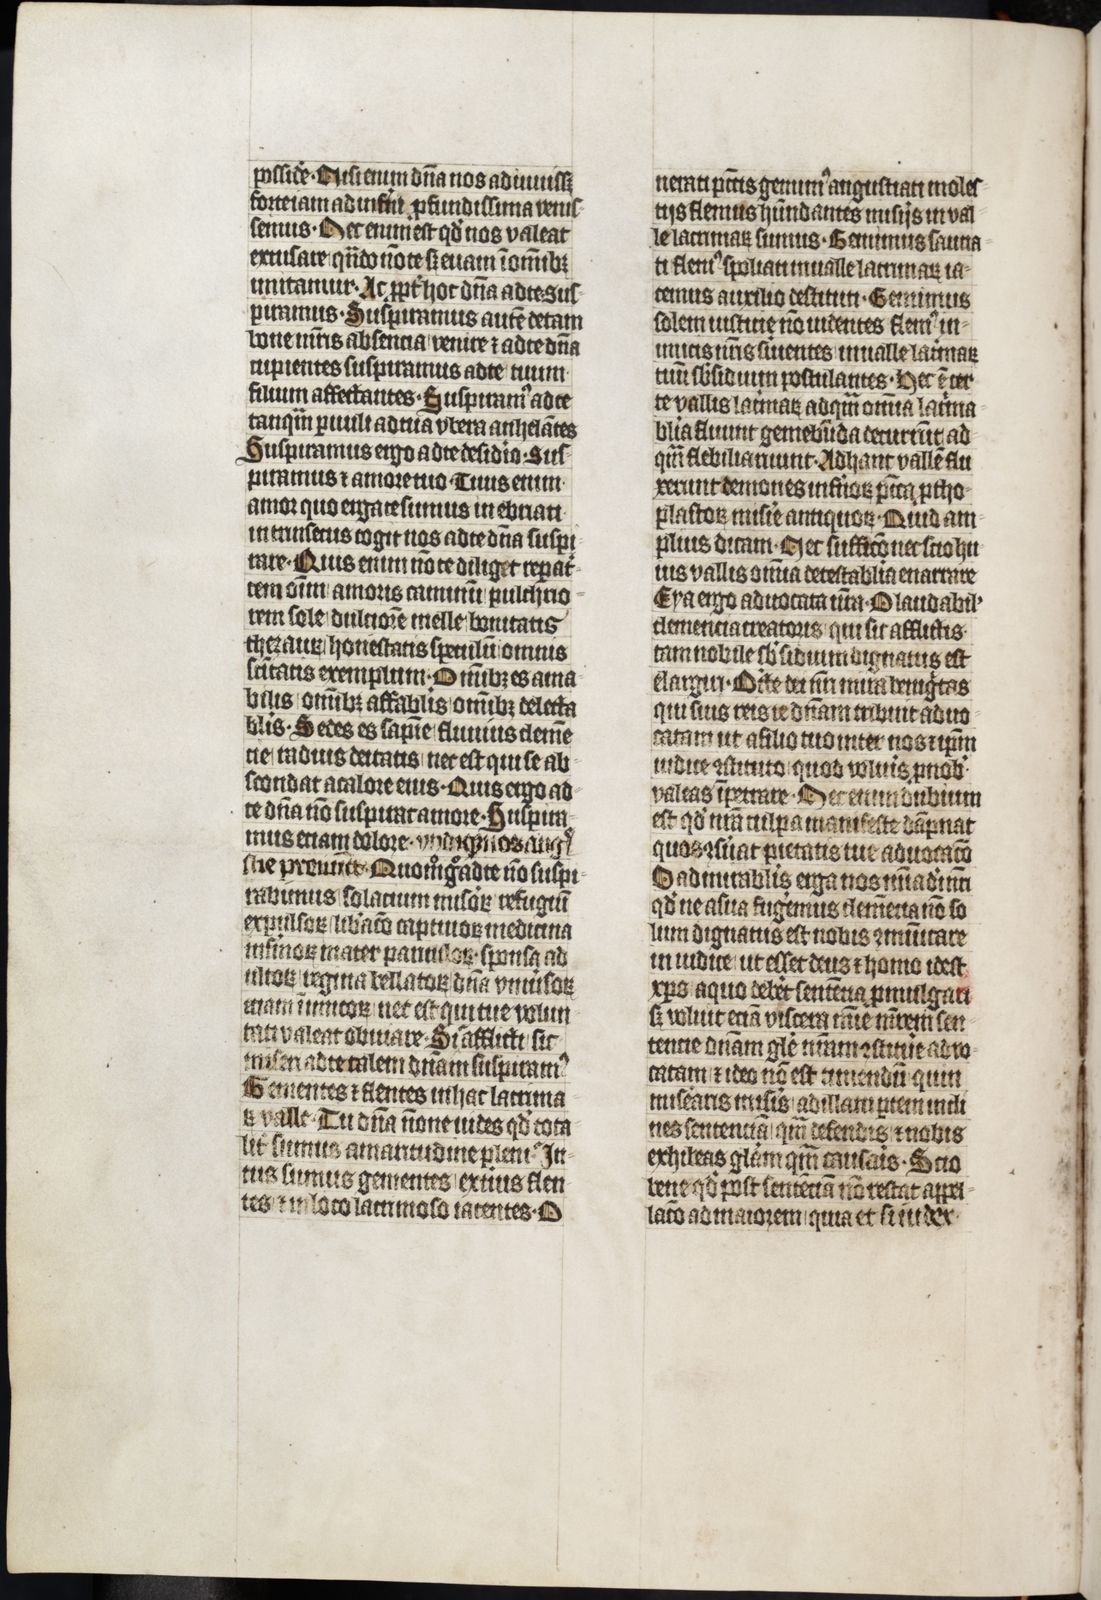 possid̄e · Nisi enim dn̄a nos adiuuiss
forte iam ad infim̄ ꝓfundissima venis-
semus · Nec enim est qd̓ nos valeat
excusare qn̄do nō te sꝫ euam ī omībꝫ
imitamur · Ac ꝓpt̓ hoc dn̄a ad te sus-
piramus · Suspiramus autē de tam
bone mr̄is absencia venire ⁊ ad te dn̄a
cupientes suspiramus ad te tuum
filium affectantes · Suspiramꝰ ad te
tanqm̄ ꝑuuli ad tua vbera anhelātes
Suspiramus ergo ad te desidio · Sus-
piramus ⁊ amore tuo · Tuus enim
amor quo erga te sumus inebriati
intrinsecus cogit nos ad te dn̄a suspi-
rare · Quis enim nō te diliget repat̄-
rem oīm amoris caminū pulchrio-
rem sole dulciorē melle bonitatis
thezauꝝ honestatis speculū omnis
scītatis exemplum · Omībꝫ es ama
bilis omībꝫ affablis omībꝫ delecta
blis · Sedes es sapīe fluuius clemē
cie radius deitatis nec est qui se ab-
scondat a calore eius · Quis ergo ad
te dn̄a nō suspirat amore · Suspira-
mus etiam dolore · vndiqꝫ nos angꝰ
stie premūt · Quomͦ gͦ ad te nō suspi-
rabimus solacium misōꝝ refugiū
expulsoꝝ lib̄acō captiuoꝝ medicina
infirmoꝝ mater paruuloꝝ sponsa ad
ultoꝝ regina bellatoꝝ dn̄a vniuīsoꝝ
etiam īimicoꝝ nec est qui tue volun
tati valeat obuiare · Si afflicti sic
miseri ad te talem dn̄am suspiramꝰ
Gementes ⁊ flentes in hac lacrima
ꝝ valle · Tu dn̄a nōne uides qd̓ tota
lit̓ sumus amaritudine pleni · In-
tus sumus gementes extius flen
tes ⁊ in loco lacrimoso iacentes · O
nerati pctīs gemimꝰ angustiati moles-
tijs flemus hūndantes misijs in val-
le lacrimaꝝ sumus · Gemimus saucia-
ti flemꝰ spoliati in ualle lacrimaꝝ ia-
cemus auxilio destituti · Gemimus
solem iusticie nō uidentes flemꝰ in-
imicis nr̄is siuentes in ualle lacrīmaꝝ
tuū sb̓sidium postulantes · Hec ē cer
te vallis lacrīmaꝝ ad qm̄ omīa lacrīma-
blia fluunt gemebūda decurrūt ad
qm̄ flebilia ruunt · Ad hanc vallē flu
xerunt demones infn̄oꝝ pctā ꝓtho
plastoꝝ misīe antiquoꝝ · Quid am
plius dicam · Nec sufficiō nec scio hu
ius vallis omīa detestablia enarrare
Eya ergo aduocata nr̄a · O laudabil̓
clemencia creatoris qui sic afflictis
tam nobile sb̓sidium dignatus est
elargiri · O ste dei fīni mira benigtas
qui suis reis te dn̄am tribuit aduo
catam ut a filio tuo inter nos ⁊ ip̄m
iudice ꝯstituto quod voluīs ꝑ nob̓
valeas īpetrare · Nec enim dubium
est qd̓ nr̄a culpa manifeste dāpnat
quos ꝯsūat pietatis tue aduocacō
O admirablis erga nos nr̄i ad īnti
qd̓ ne a sua fugemus clemēcia nō so
lum dignatus est nobis ꝯmūicare
in iudice ut esset deus ⁊ homo idest
xp̄s a quo debet sentēcia ꝓmulgari
sꝫ voluit eciā viscera mīe mr̄em sen
tencie dn̄am glē nr̄am ꝯstitūe aduo
catam ⁊ ideo nō est timendū quin
miseāris misīs ad illam ꝑtem incli
nes sentenciā qm̄ defendis ⁊ nobis
exhibeas glām qm̄ causāis · Scio
bene qd̓ post sentēciā nō restat appel
lacō ad maiorem quia et si iudex